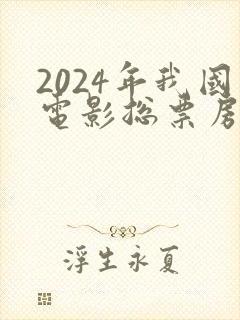 2024年我国
电影总票房
浮生永夏